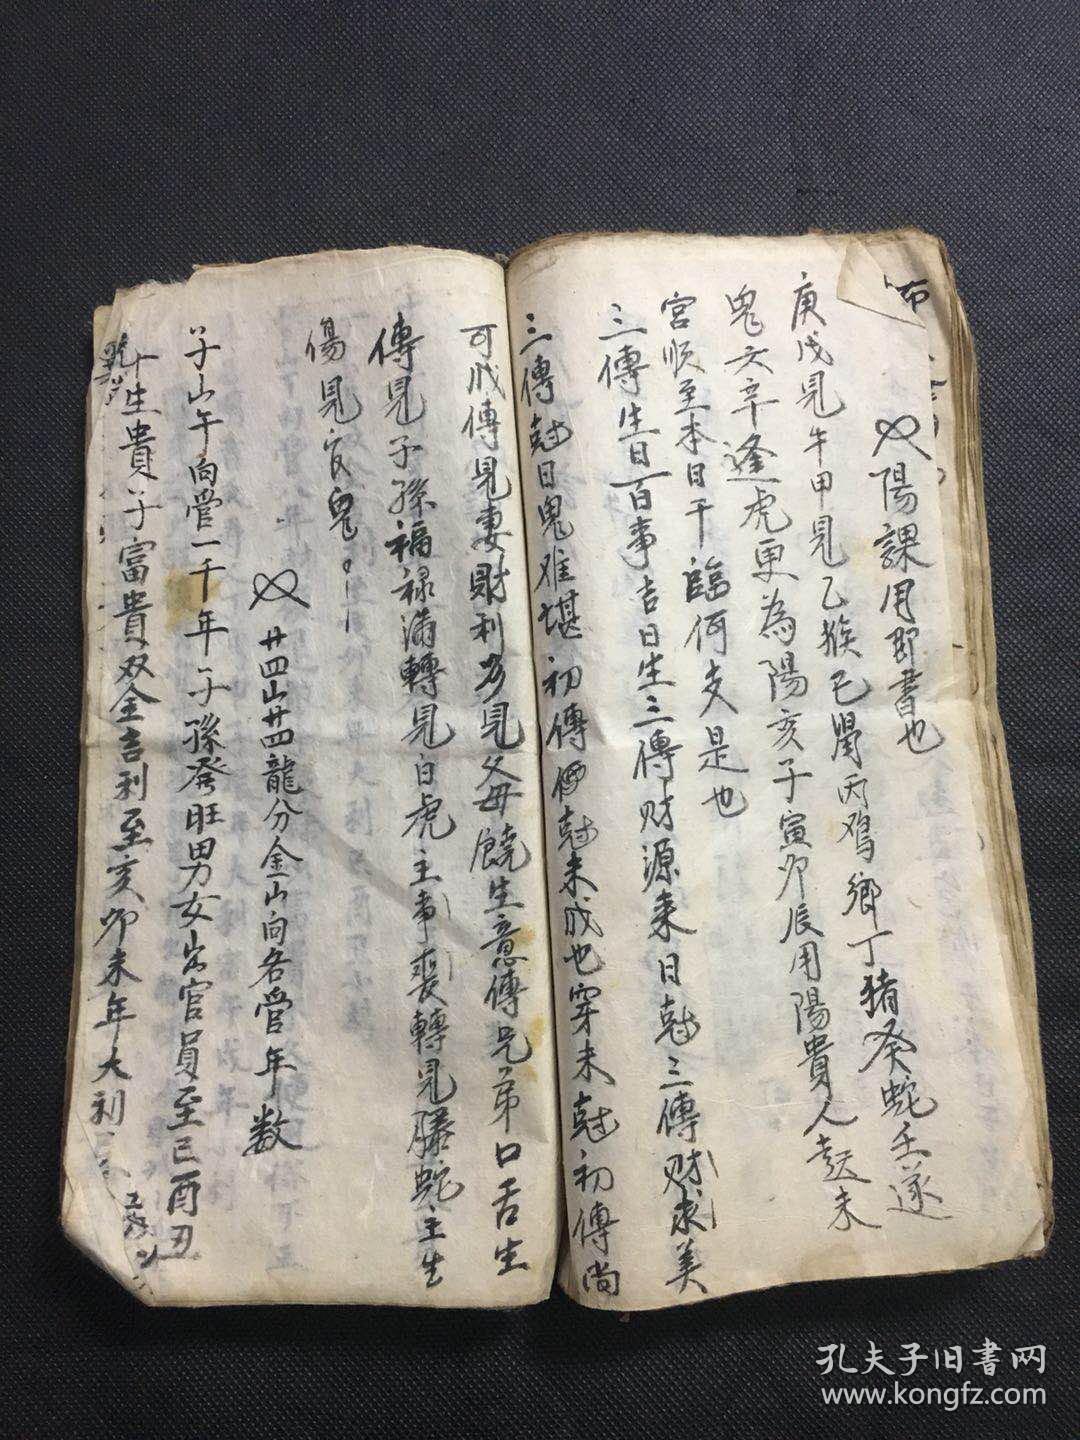 陽課用即書也
庚戊見牛甲見乙猴己鼠丙鸡鄉丁猪癸蛇壬遂
鬼六辛逢虎更為陽亥子寅卯辰用陽貴人起未
宮順至本日干臨何支是也
三傳生日百事吉日生三傳财源来日尅三傳财求美
三傳尅日鬼难堪初傳尅末成也穿末尅初傳尚
可成傳見妻財利多見父母饒生意傳兄弟口舌生
傳見子孫福禄滿轉見白虎主事喪轉見騰蛇主生
傷見官鬼
廿四山廿四龍分金山向各管年数
子山午向管一千年子孫發旺男女出官員至巳酉丑
年生貴子富貴双全吉利至亥卯未年大利
布
孔夫子旧書网
www.kongfz.com